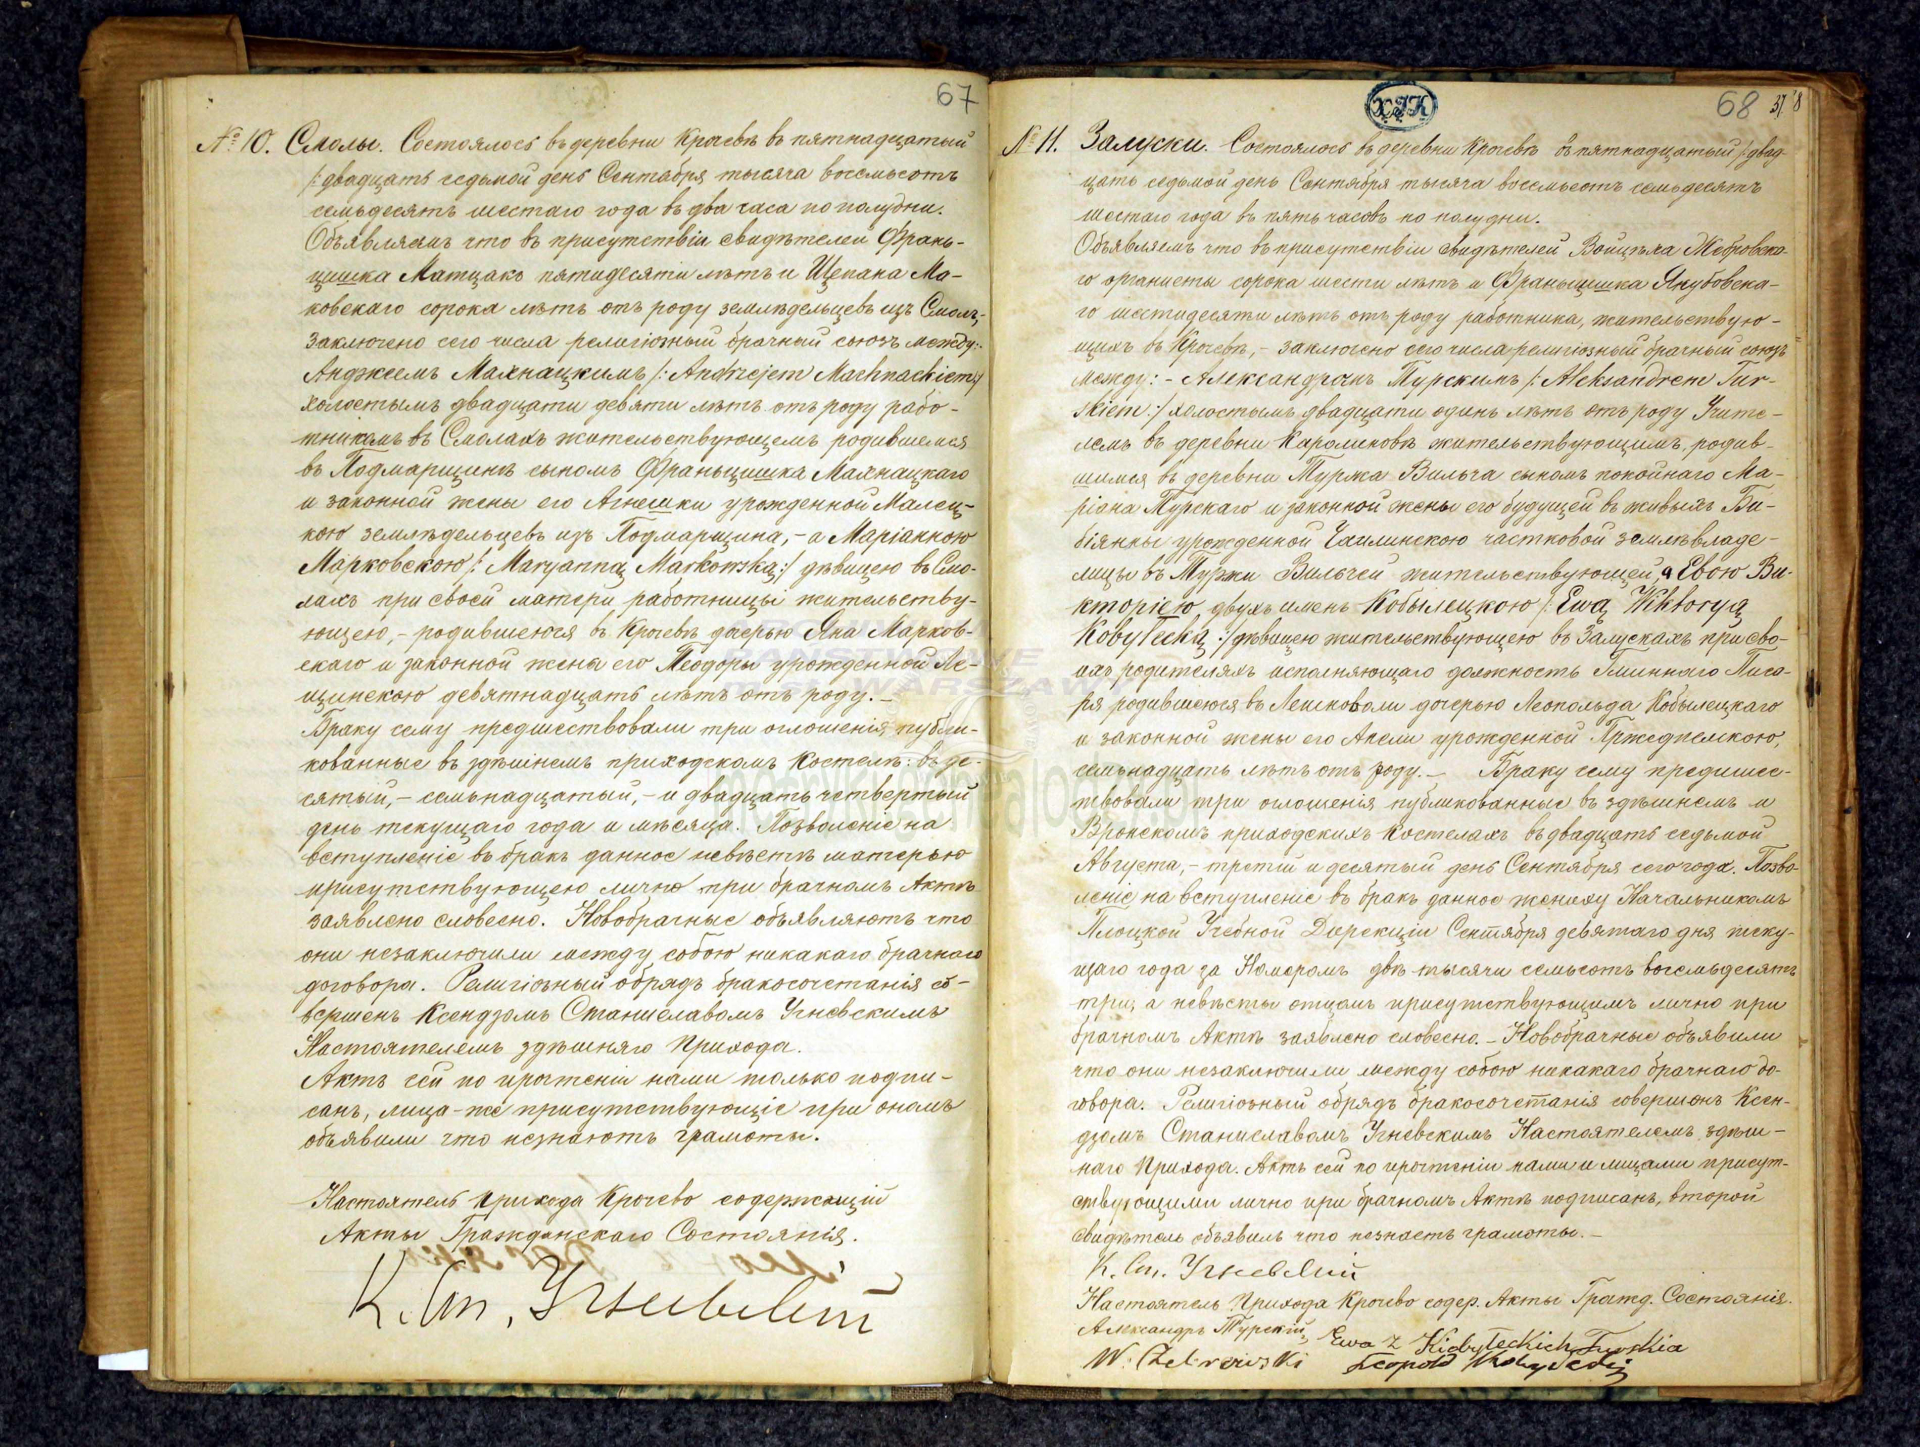 67
№ 10. Смолы. Состоялось въ деревни Крочевѣ въ пятнадцатый
/: двадцать седьмой день Сентября тысяча восемьсотъ
семьдесятъ шестаго года въ два часа по полудни.
Объявляемъ что въ присутствіи свидѣтелей Франь-
цишка Матцакъ пятидесяти лѣтъ и Щепана Ма-
ковскаго сорока лѣтъ отъ роду земледѣльцевъ изъ Смолъ,
заключено сего числа религіозный брачный союзъ между:-
Анджеемъ Махнацкимъ /: Andrzejem Machnackiem :/
холостымъ двадцати девяти лѣтъ отъ роду рабо-
тникомъ въ Смолахъ жительствующемъ родившемся
въ Подмарщинѣ сыномъ Франьцишка Махнацкаго
и законной жены его Агнешки урожденной Малец-
кою земледѣльцевъ изъ Подмарщина, - а Маріанною
Марковскою /: Maryanną Markowską :/ дѣвицею въ Смо-
лахъ при своей матери работницы жительству-
ющею, - родившеюся въ Крочевѣ дочерью Яна Марков-
скаго и законной жены его Теодоры урожденной Ле-
щинскою девятнадцать лѣтъ отъ роду. -
Браку сему предшествовали три оглошенія публи-
кованные въ здѣшнемъ приходскомъ костелѣ: въ де-
сятый, - семьнадцатый, - и двадцать четвертый
день текущаго года и мѣсяца. Позволеніе на
вступленіе въ бракъ данное невѣстѣ матерью
присутствующею лично при брачномъ Актѣ
заявлено словесно. Новобрачные объявляютъ что
они незаключили между собою никакаго брачнаго
договора. Религіозный обрядъ бракосочетанія со-
вершенъ Ксендзомъ Станиславомъ Угневскимъ
Настоятелемъ здѣшняго Прихода.
Актъ сей по прочтеніи нами только подпи-
санъ, лица-же присутствующіе при ономъ
объявили что незнаютъ грамоты.
Настоятель Прихода Крочево содержащій
Акты Гражданскаго Состоянія.
К. Ст. Угневскій
XJK
68 37 8
№ 11. Залуски. Состоялось въ деревни Крочевѣ въ пятнадцатый /: двад-
цать седьмой день Сентября тысяча восемьсотъ семьдесятъ
шестаго года въ пять часовъ по полудни.
Объявляемъ что въ присутствіи свидѣтелей Войцѣха Жебровска-
го органисты сорока шести лѣтъ и Франьцишка Якубовска-
го шестидесяти лѣтъ отъ роду работника, жительствую-
щихъ въ Крочевѣ, - заключено сего числа религіозный брачный союзъ
между: - Александромъ Турскимъ /: Aleksandrem Tur-
skiem :/ холостымъ двадцати одинъ лѣтъ отъ роду Учите-
лемъ въ деревни Каролиновѣ жительствующимъ, родив-
шимся въ деревни Туржа Вильча сыномъ покойнаго Ма-
ріана Турскаго и законной жены его будущей въ живыхъ Би-
біянны урожденной Чаплинскою частковой землевладе-
лицы въ Туржи Вильчей жительствующей, а Евою Ви-
кторіею двухъ именъ Кобылецкою /: Ewą Wiktoryą
Kobyłecką :/ дѣвицею жительствующею въ Залускахъ при сво-
ихъ родителяхъ исполняющаго должность Гминнаго Писа-
ря родившеюся въ дочерью Леопольда Кобылецкаго
и законной жены его Анели урожденной Пржедпелскою,
семьнадцать лѣтъ отъ роду. - Браку сему предшес-
твовали три оглошенія публикованные въ здѣшнемъ и
Вронскомъ приходскихъ костелахъ въ двадцать седьмой
Августа, - третій и десятый день Сентября сего года. Позво-
леніе на вступленіе въ бракъ данное жениху Начальникомъ
Плоцкой Учебной Дирекціи Сентября девятаго дня теку-
щаго года за Номеромъ двѣ тысячи семьсотъ восемьдесятъ
три, а невѣсты отцомъ присутствующимъ лично при
брачномъ Актѣ заявлено словесно. - Новобрачные объявили
что они незаключили между собою никакаго брачнаго до-
говора. Религіозный обрядъ бракосочетанія совершонъ Ксен-
дзомъ Станиславомъ Угневскимъ Настоятелемъ здѣш-
наго Прихода. Актъ сей по прочтеніи нами и лицами присут-
ствующими лично при брачномъ Актѣ подписанъ, второй
свидѣтель объявилъ что незнаетъ грамоты. -
К. Ст. Угневскій
Настоятель Прихода Крочево содер. Акты Гражд. Состоянія.
Александръ Турскій, Ewa z Kobyłeckich Turska
W. Żebrowski Leopold Kobyłecki